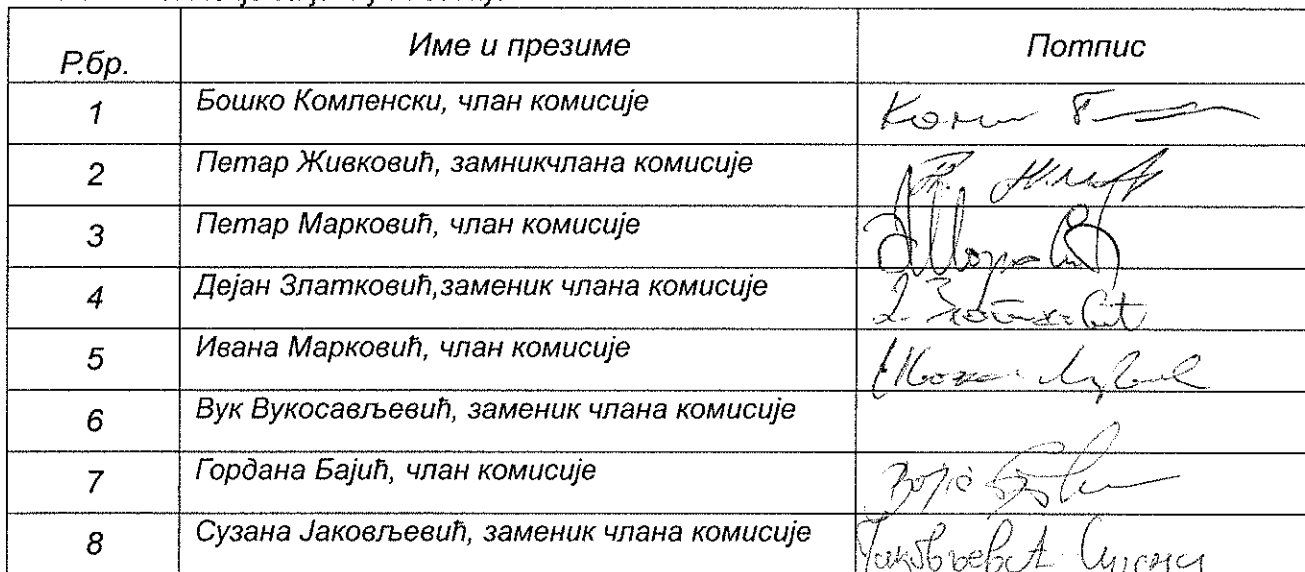 Р.бр. Име и презиме Потпис
1 Бошко Комленски, члан комисије
2 Петар Живковић, замникчлана комисије
3 Петар Марковић, члан комисије
4 Дејан Златковић,заменик члана комисије
5 Ивана Марковић, члан комисије
6 Вук Вукосављевић, заменик члана комисије
7 Гордана Бајић, члан комисије
8 Сузана Јаковљевић, заменик члана комисије